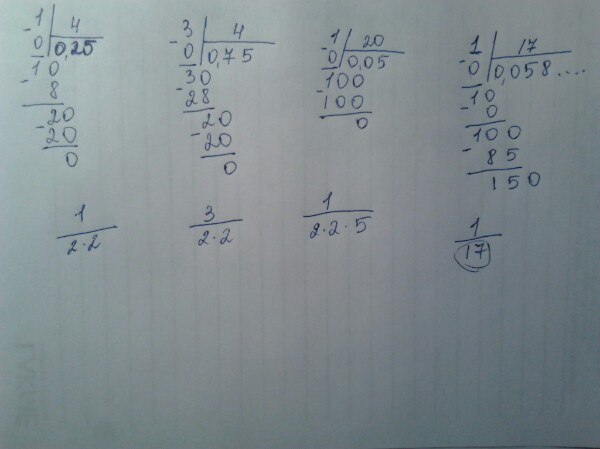 -1 | 4
0 | 0,25
-10
8
-20
20
0
1
2·2
-3 | 4
0 | 0,75
-30
28
-20
20
0
3
2·2
-1 | 20
0 | 0,05
-100
100
0
1
2·2·5
-1 | 17
0 | 0,058....
-10
0
-100
85
150
1
17